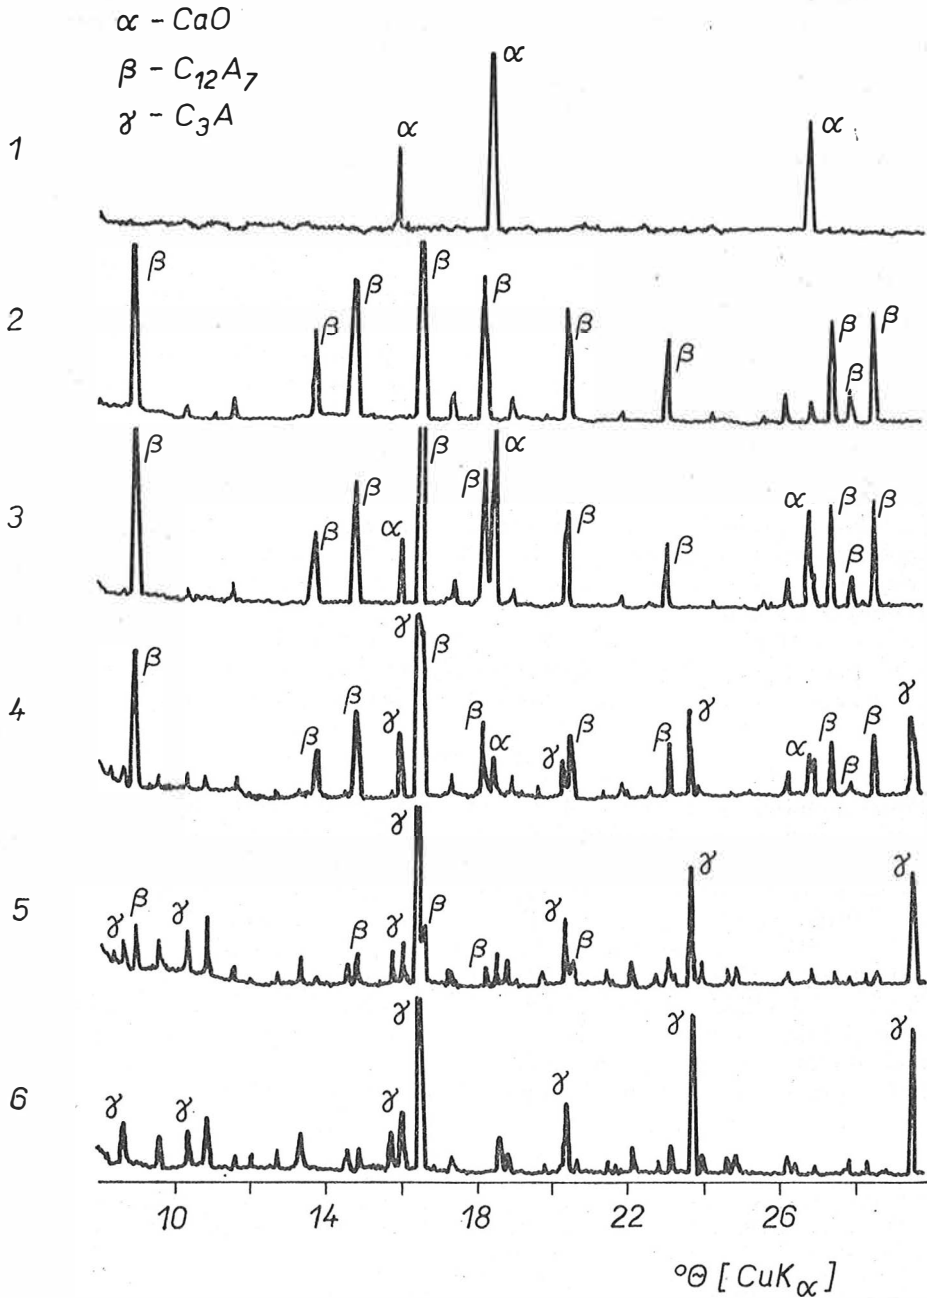 α - CaO
β - C₁₂A₇
γ - C₃A
1
α
α
α
2
β
β
β
β
β
β
β
β
β
β
3
β
β
β
α
β
β
α
β
β
α
β
β
β
4
β
β
β
γ
γ
β
β
α
γ
β
β
γ
α
β
β
β
γ
5
γ
β
γ
β
γ
γ
β
β
γ
β
γ
γ
6
γ
γ
γ
γ
γ
γ
γ
10 14 18 22 26
°Θ [CuKα]